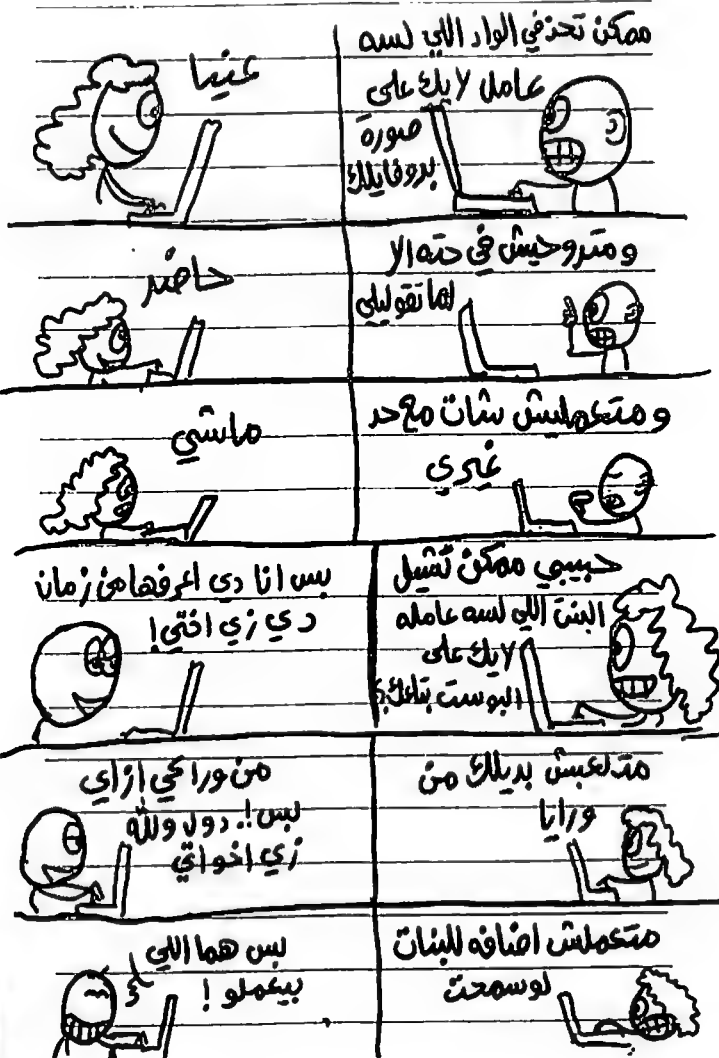 ممكن تحذفي الواد اللي لسه
عامل لايك علي
صورة
بروفايلك
عنيا
ومتروحيش في حته الا
لما تقوليلي
حاضر
ومتعمليش شات مع حد
غيري
ماشي
حبيبي ممكن تشيل
البنت اللي لسه عامله
لايك على
البوست بتاعك؟
بس انا دي اعرفها من زمان
دي زي اختي!
متلعبش بديلك من
ورايا
من وراكي إزاي
بس!. دول والله
زي اخواتي
متعملش اضافه للبنات
لوسمحت
بس هما اللي
بيعملو!